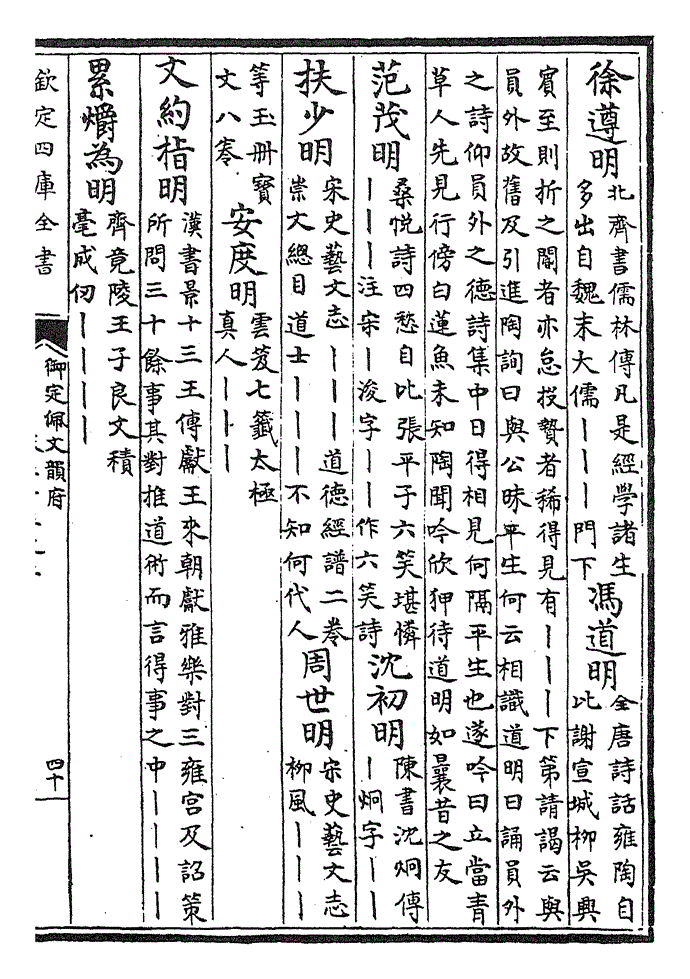 徐遵明
北齊書儒林傳凡是經學諸生
多出自魏末大儒丨丨丨門下
馮道明
全唐詩話雍陶自
比謝宣城柳吳興
賓至則折之閽者亦怠投贄者稀得見有丨丨丨下第請謁云與
員外故舊及引進陶詢曰與公昧平生何云相識道明曰誦員外
之詩仰員外之德詩集中日得相見何隔平生也遂吟曰立當青
草人先見行傍白蓮魚未知陶聞吟欣狎待道明如曩昔之友
范茂明
桑悅詩四愁自比張平子六笑堪憐
丨丨丨注宋丨浚字丨丨作六笑詩
沈初明
陳書沈炯傳
丨炯字丨丨
扶少明
宋史藝文志丨丨丨道德經譜二卷
崇文總目道士丨丨丨不知何代人
周世明
宋史藝文志
柳風丨丨丨
等玉册寳
文八卷
安度明
雲笈七籤太極
真人丨丨丨
文約指明
漢書景十三王傳獻王來朝獻雅樂對三雍宫及詔策
所問三十餘事其對推道術而言得事之中丨丨丨丨
累爝為明
齊竟陵王子良文積
毫成仞丨丨丨丨
欽定四庫全書
御定佩文韻府
四十